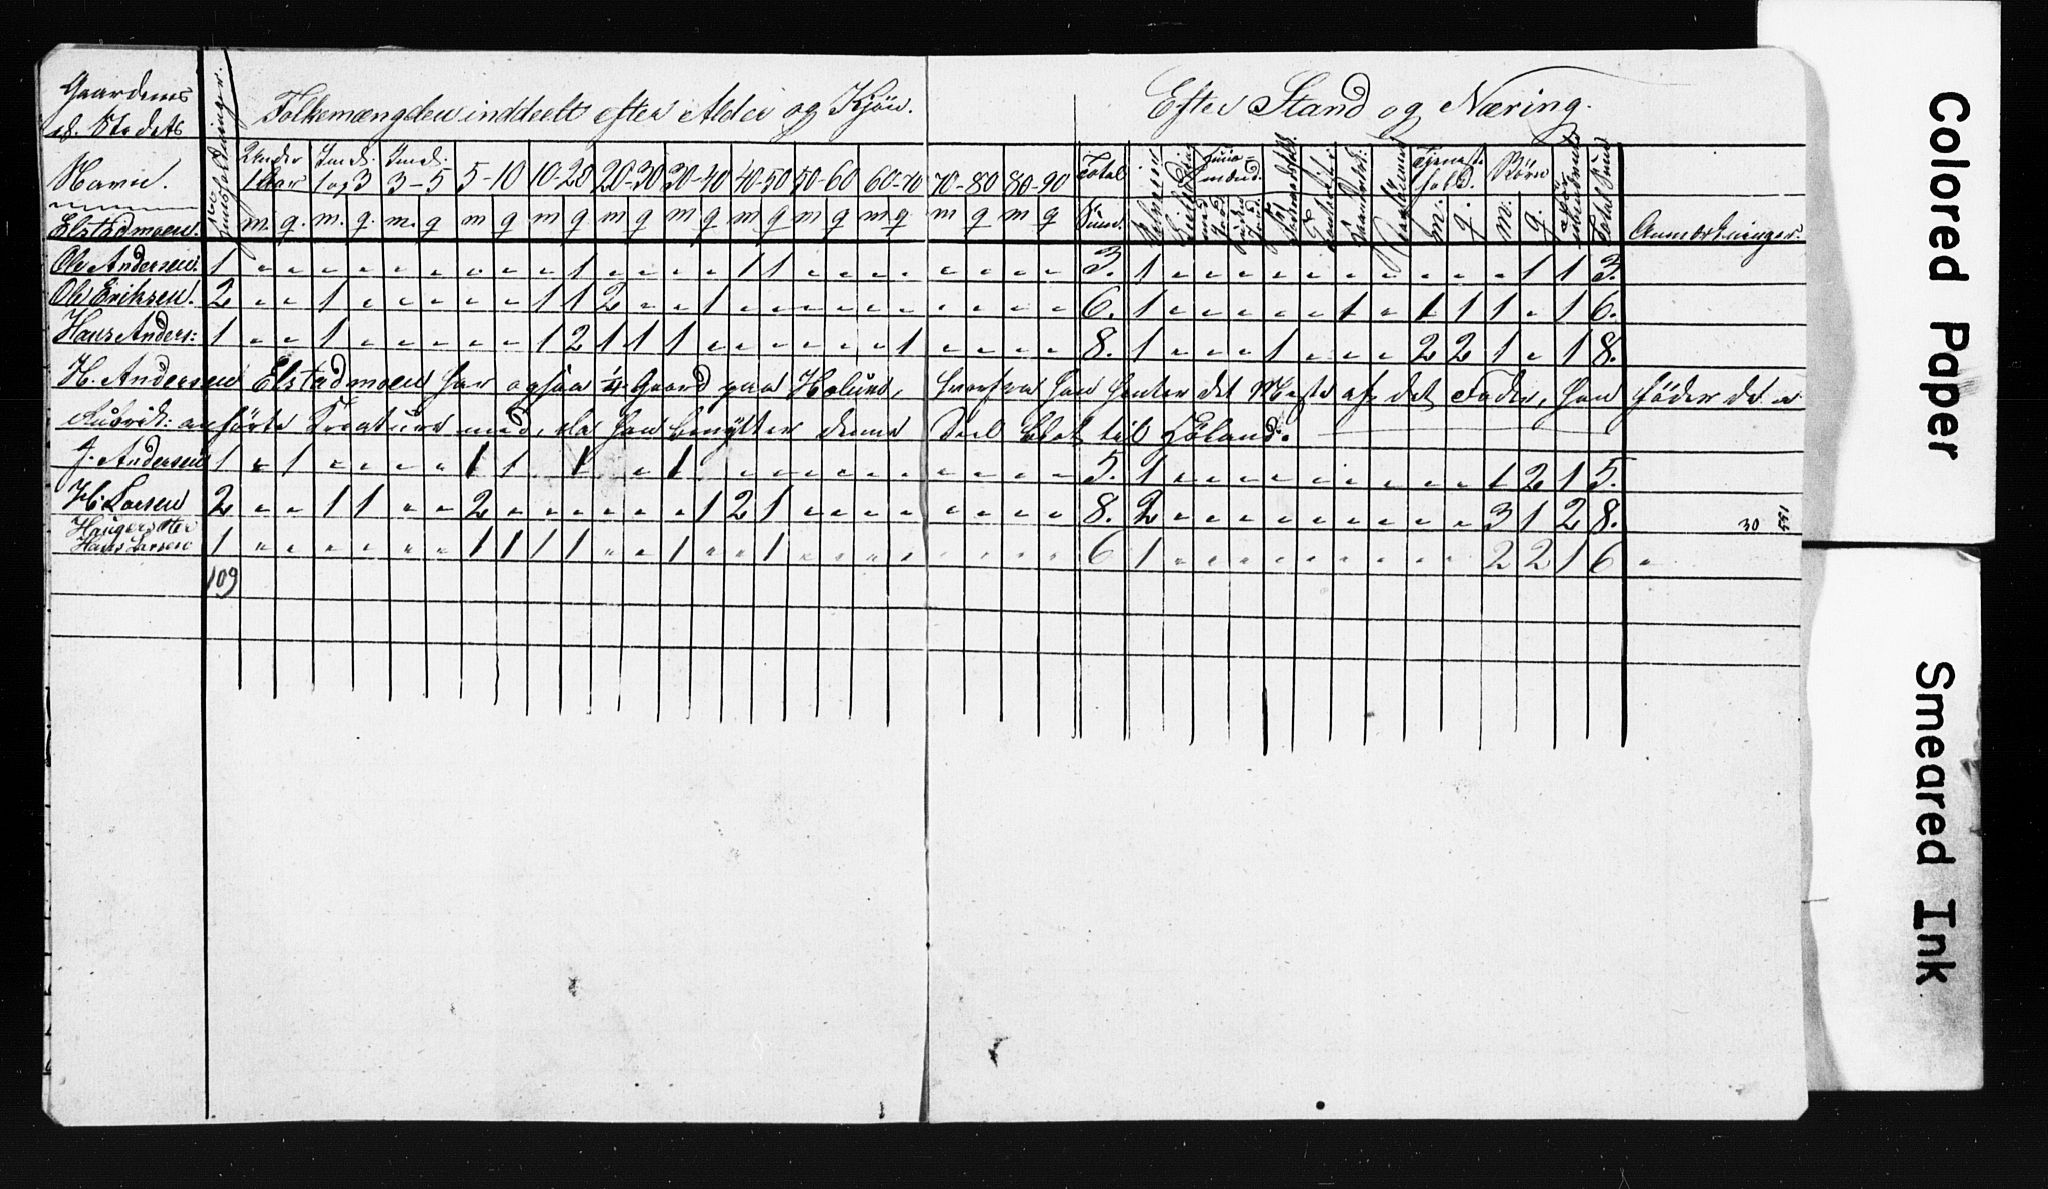 Gaardens
el. Stedets
Navn.
Elstadmoen.
Huusholdninger.
Folkemængden inddeelt efter Alder og Kjön.
Efter Stand og Næring.
Under 1 Aar
Imel. 1 og 3
Imel. 3-5
5-10 10-20 20-30 30-40 40-50 50-60 60-70 70-80 80-90
Total Sum.
Tjeneste fold.
Børn
Total Sum
m. q. m. q. m. q m q m q m q m q m q m q m q m q m q
m. q. m. q.
Anmærkninger.
Ole Andersen. 1 " " " " " " " " " 1 " " " " 1 1 " " " " " " " 3. 1 " " " " " " " " " " 1 1 3.
Ole Eriksen. 2 " " 1 " " " " " 1 1 2 " " 1 " " " " " " " " " 6. 1 " " " " " 1 " 1 1 1 " 1 6.
Hans Anders: 1 " " 1 " " " " " 1 2 1 1 1 " " " " " 1 " " " " 8. 1 " " " 1 " " " 2 2 1 " 1 8.
H. Andersen Elstadmoen har ogsaa 1/4 Gaard paa Holund, hvorfra han henter det Meste af det Foder, han föder de i
Rubrik: anförte Kreature med, da han benytter denne Deel blot til
J. Andersen 1 " 1 " " " " 1 1 " 1 " " 1 " " " " " " " " " 5. 1 " " " " " " " " " 1 2 1 5.
H. Larsen 2 " " 1 1 " " 2 " " " " " " 1 2 1 " " " " " " " 8. 2 " " " " " " " " " 3 1 2 8.
30
155
Haugersæter
Hans Larsen 1 " " " " " " 1 1 1 1 " " 1 " " 1 " " " " " " " 6 1 " " " " " " " " " 2 2 1 6 "
109
Colored Paper
Smeared Ink